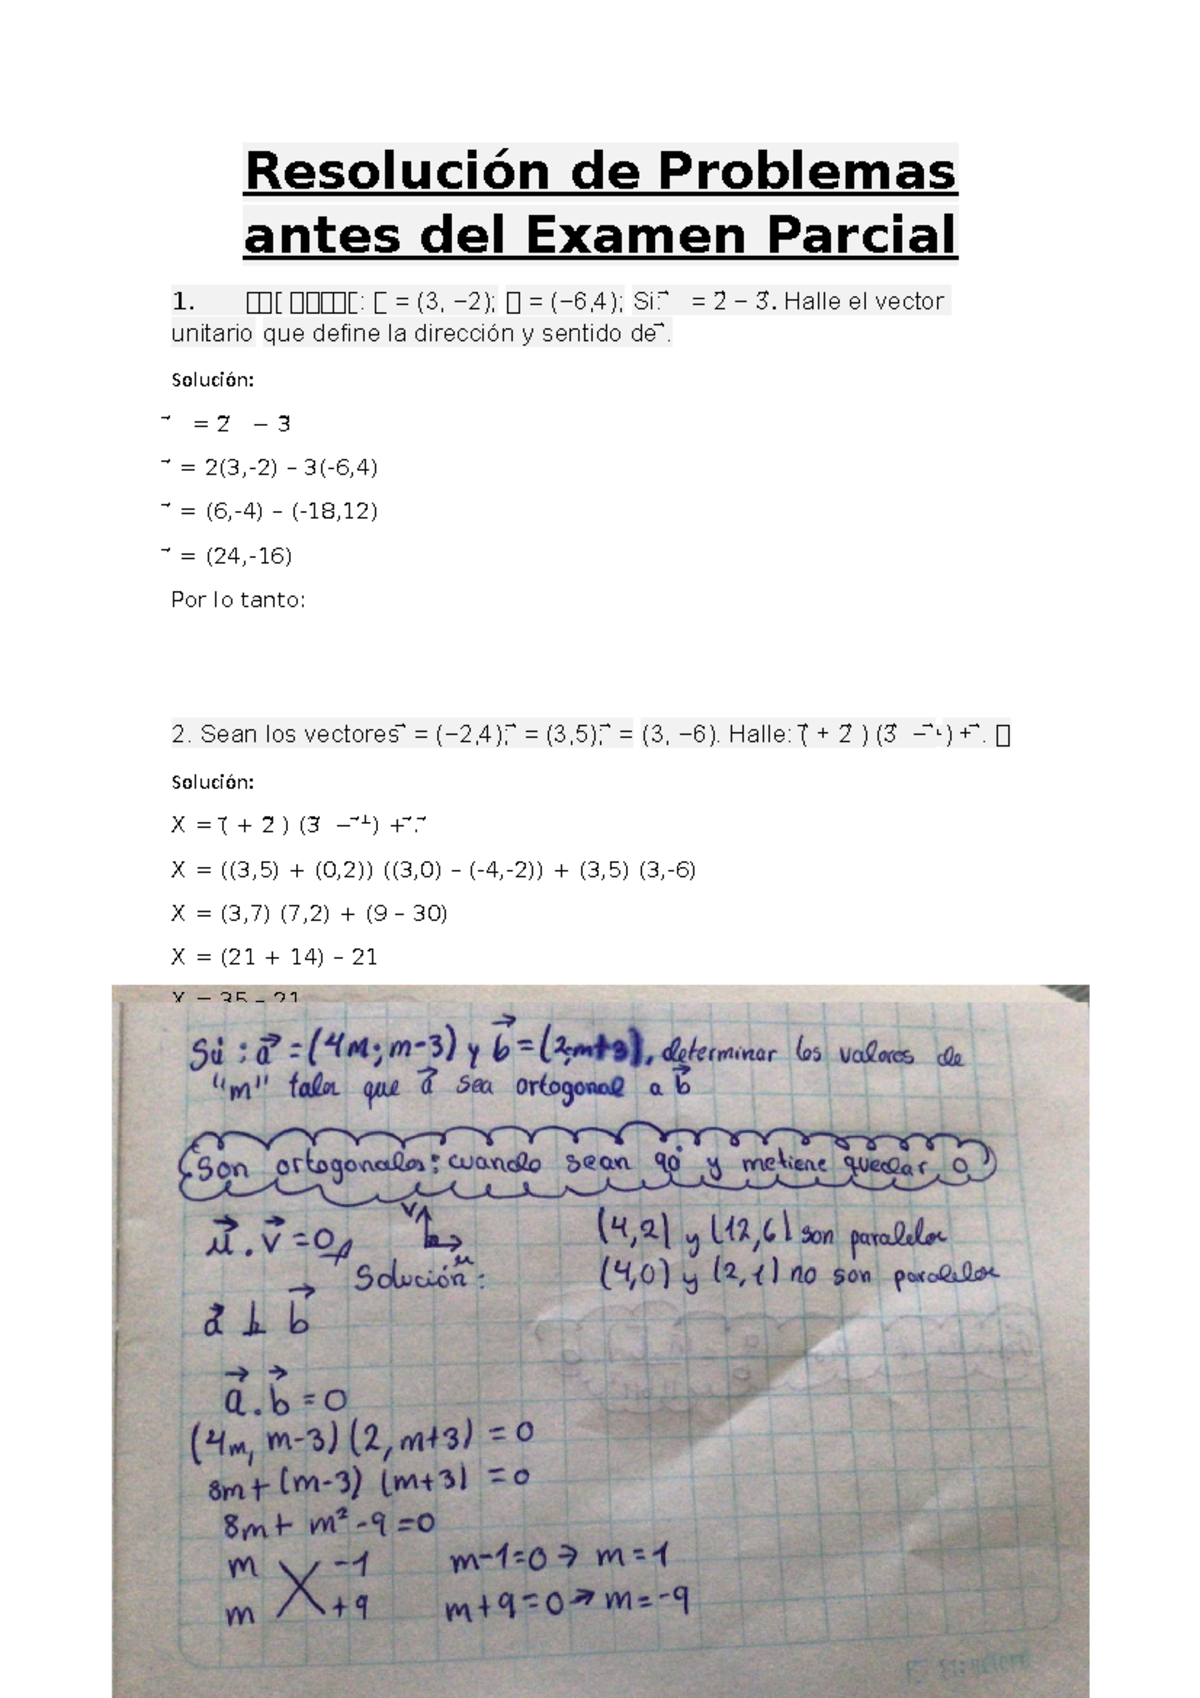 Resolución de Problemas
antes del Examen Parcial
1. : = (3, −2); = (−6,4); Si: ⃗ = 2⃗ − 3⃗. Halle el vector
unitario que define la dirección y sentido de ⃗.
Solución:
⃗ = 2⃗ − 3⃗
⃗ = 2(3,-2) – 3(-6,4)
⃗ = (6,-4) – (-18,12)
⃗ = (24,-16)
Por lo tanto:
2. Sean los vectores ⃗ = (−2,4); ⃗ = (3,5); ⃗ = (3, −6). Halle: (⃗ + 2⃗ ) (3⃗ − ⃗⊥) + ⃗.
Solución:
X = (⃗ + 2⃗ ) (3⃗ − ⃗⊥) + ⃗.⃗
X = ((3,5) + (0,2)) ((3,0) – (-4,-2)) + (3,5) (3,-6)
X = (3,7) (7,2) + (9 – 30)
X = (21 + 14) – 21
X = 35 – 21
Si : a⃗ = (4m; m-3) y b⃗ = (2;m+3), determinar los valores de
"m" tales que a⃗ sea ortogonal a b⃗
Son ortogonales: cuando sean 90° y me tiene quedar 0
u⃗ . v⃗ = 0
v
u
(4,2) y (12,6) son paralelos
Solución:
(4,0) y (2,1) no son paralelos
a⃗ ⊥ b⃗
a⃗ . b⃗ = 0
(4m, m-3) (2, m+3) = 0
8m + (m-3) (m+3) = 0
8m + m² - 9 = 0
m -1 m-1=0 → m=1
m +9 m+9=0 → m=-9